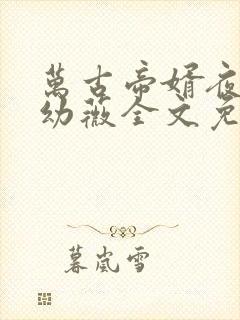 萬古帝婿夜
幼薇全文免
暮嵐雪